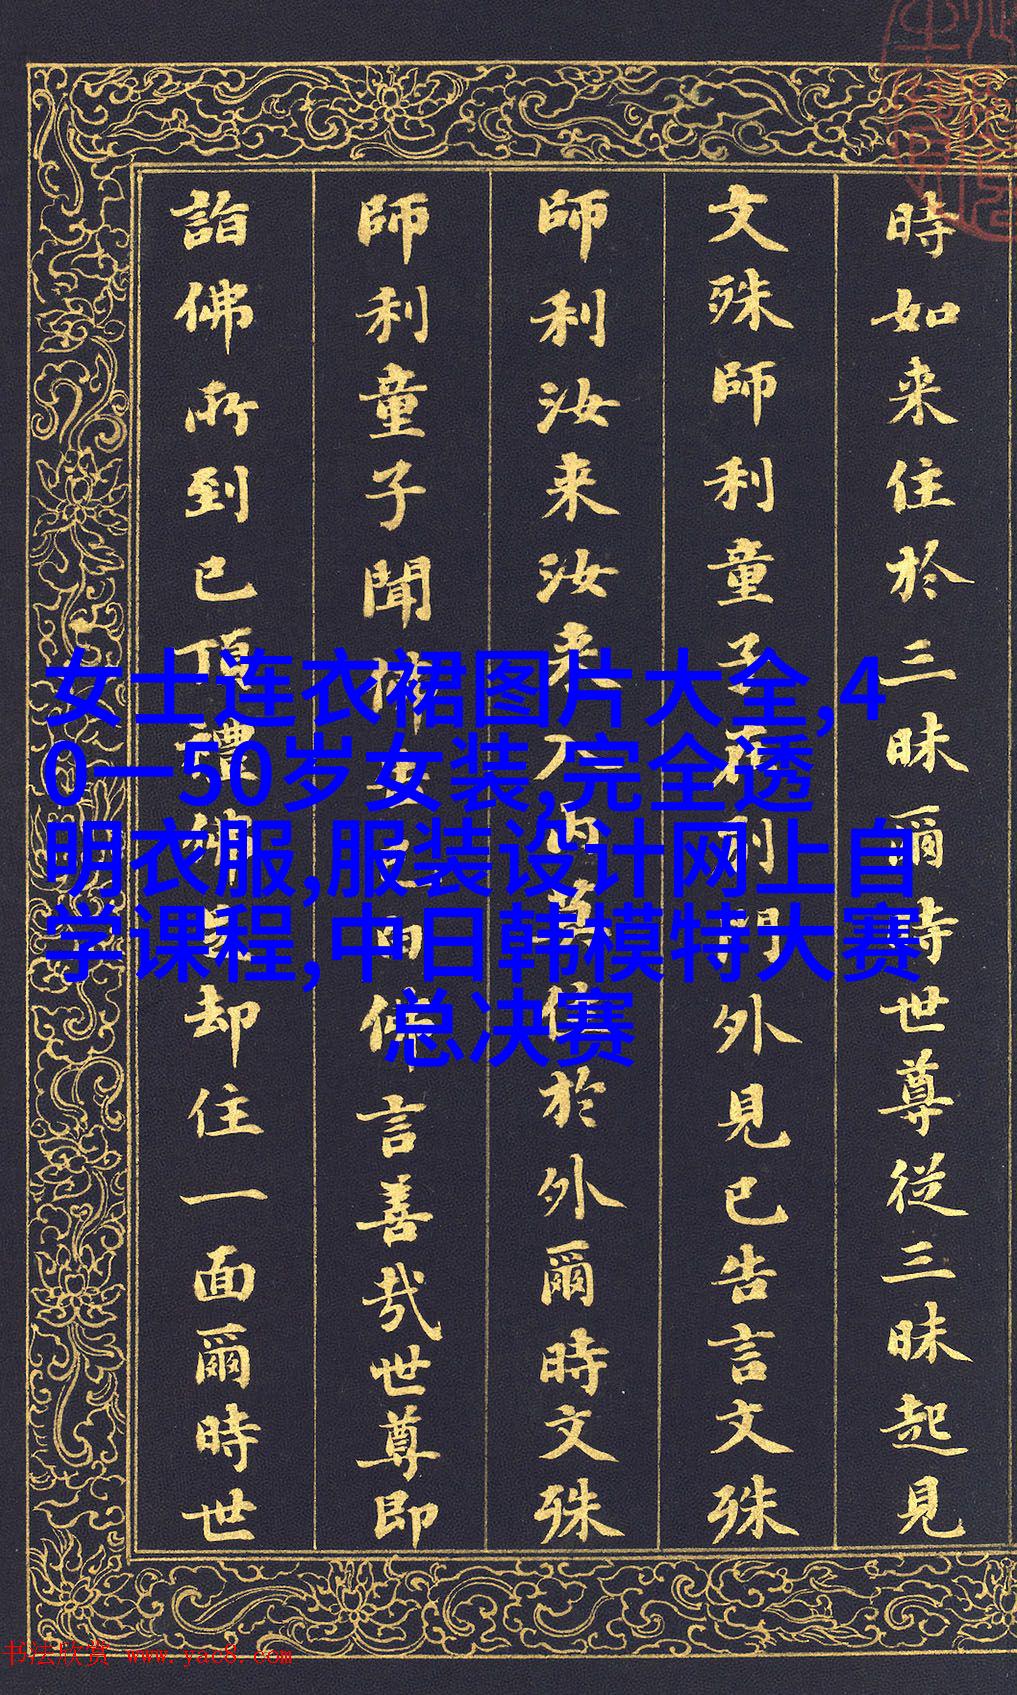 時如来住於三昧爾時世尊從三昧起見
文殊師利童子在門外見已告言文殊
師利汝来汝来入内莫住於外爾時文殊
師利童子聞佛白佛言善哉世尊即
詣佛所到已頂禮佛足却住一面爾時世
女士连衣裙图片大全,4
0一50岁女装,完全透
明衣服,服装设计网上自
学课程,中日韩模特大赛
总决赛
书法欣赏 www.yac8.com